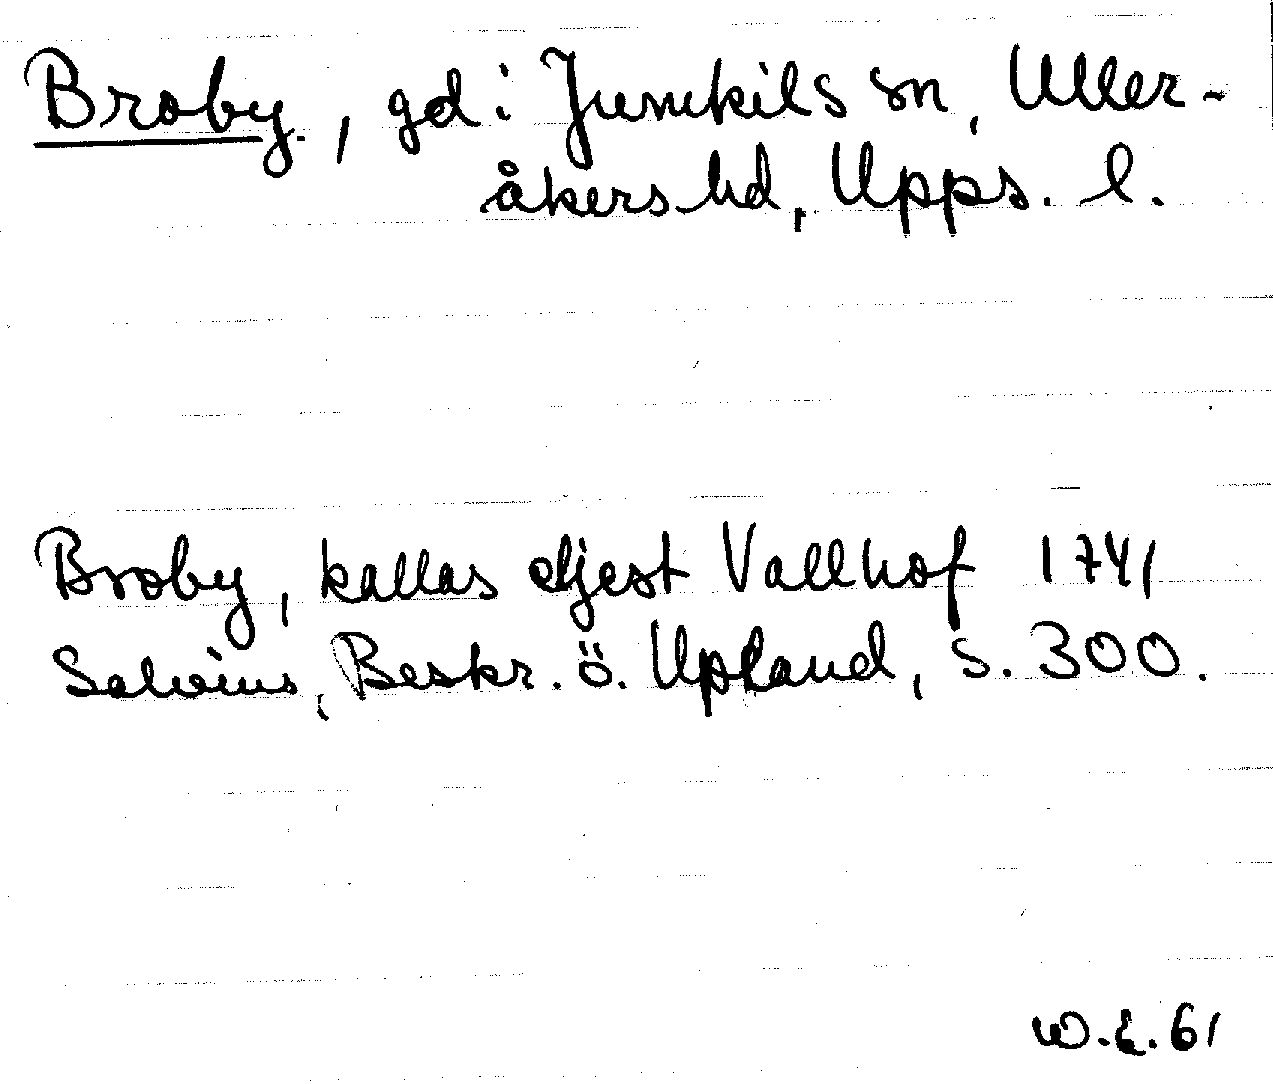 Broby, gd i Jumkils sn, Uller-
åkers hd, Upps. l.
Broby, kallas tjest Vallhof 1741
Salvius, Beskr. ö. Upland, s. 300.
W.E. 61